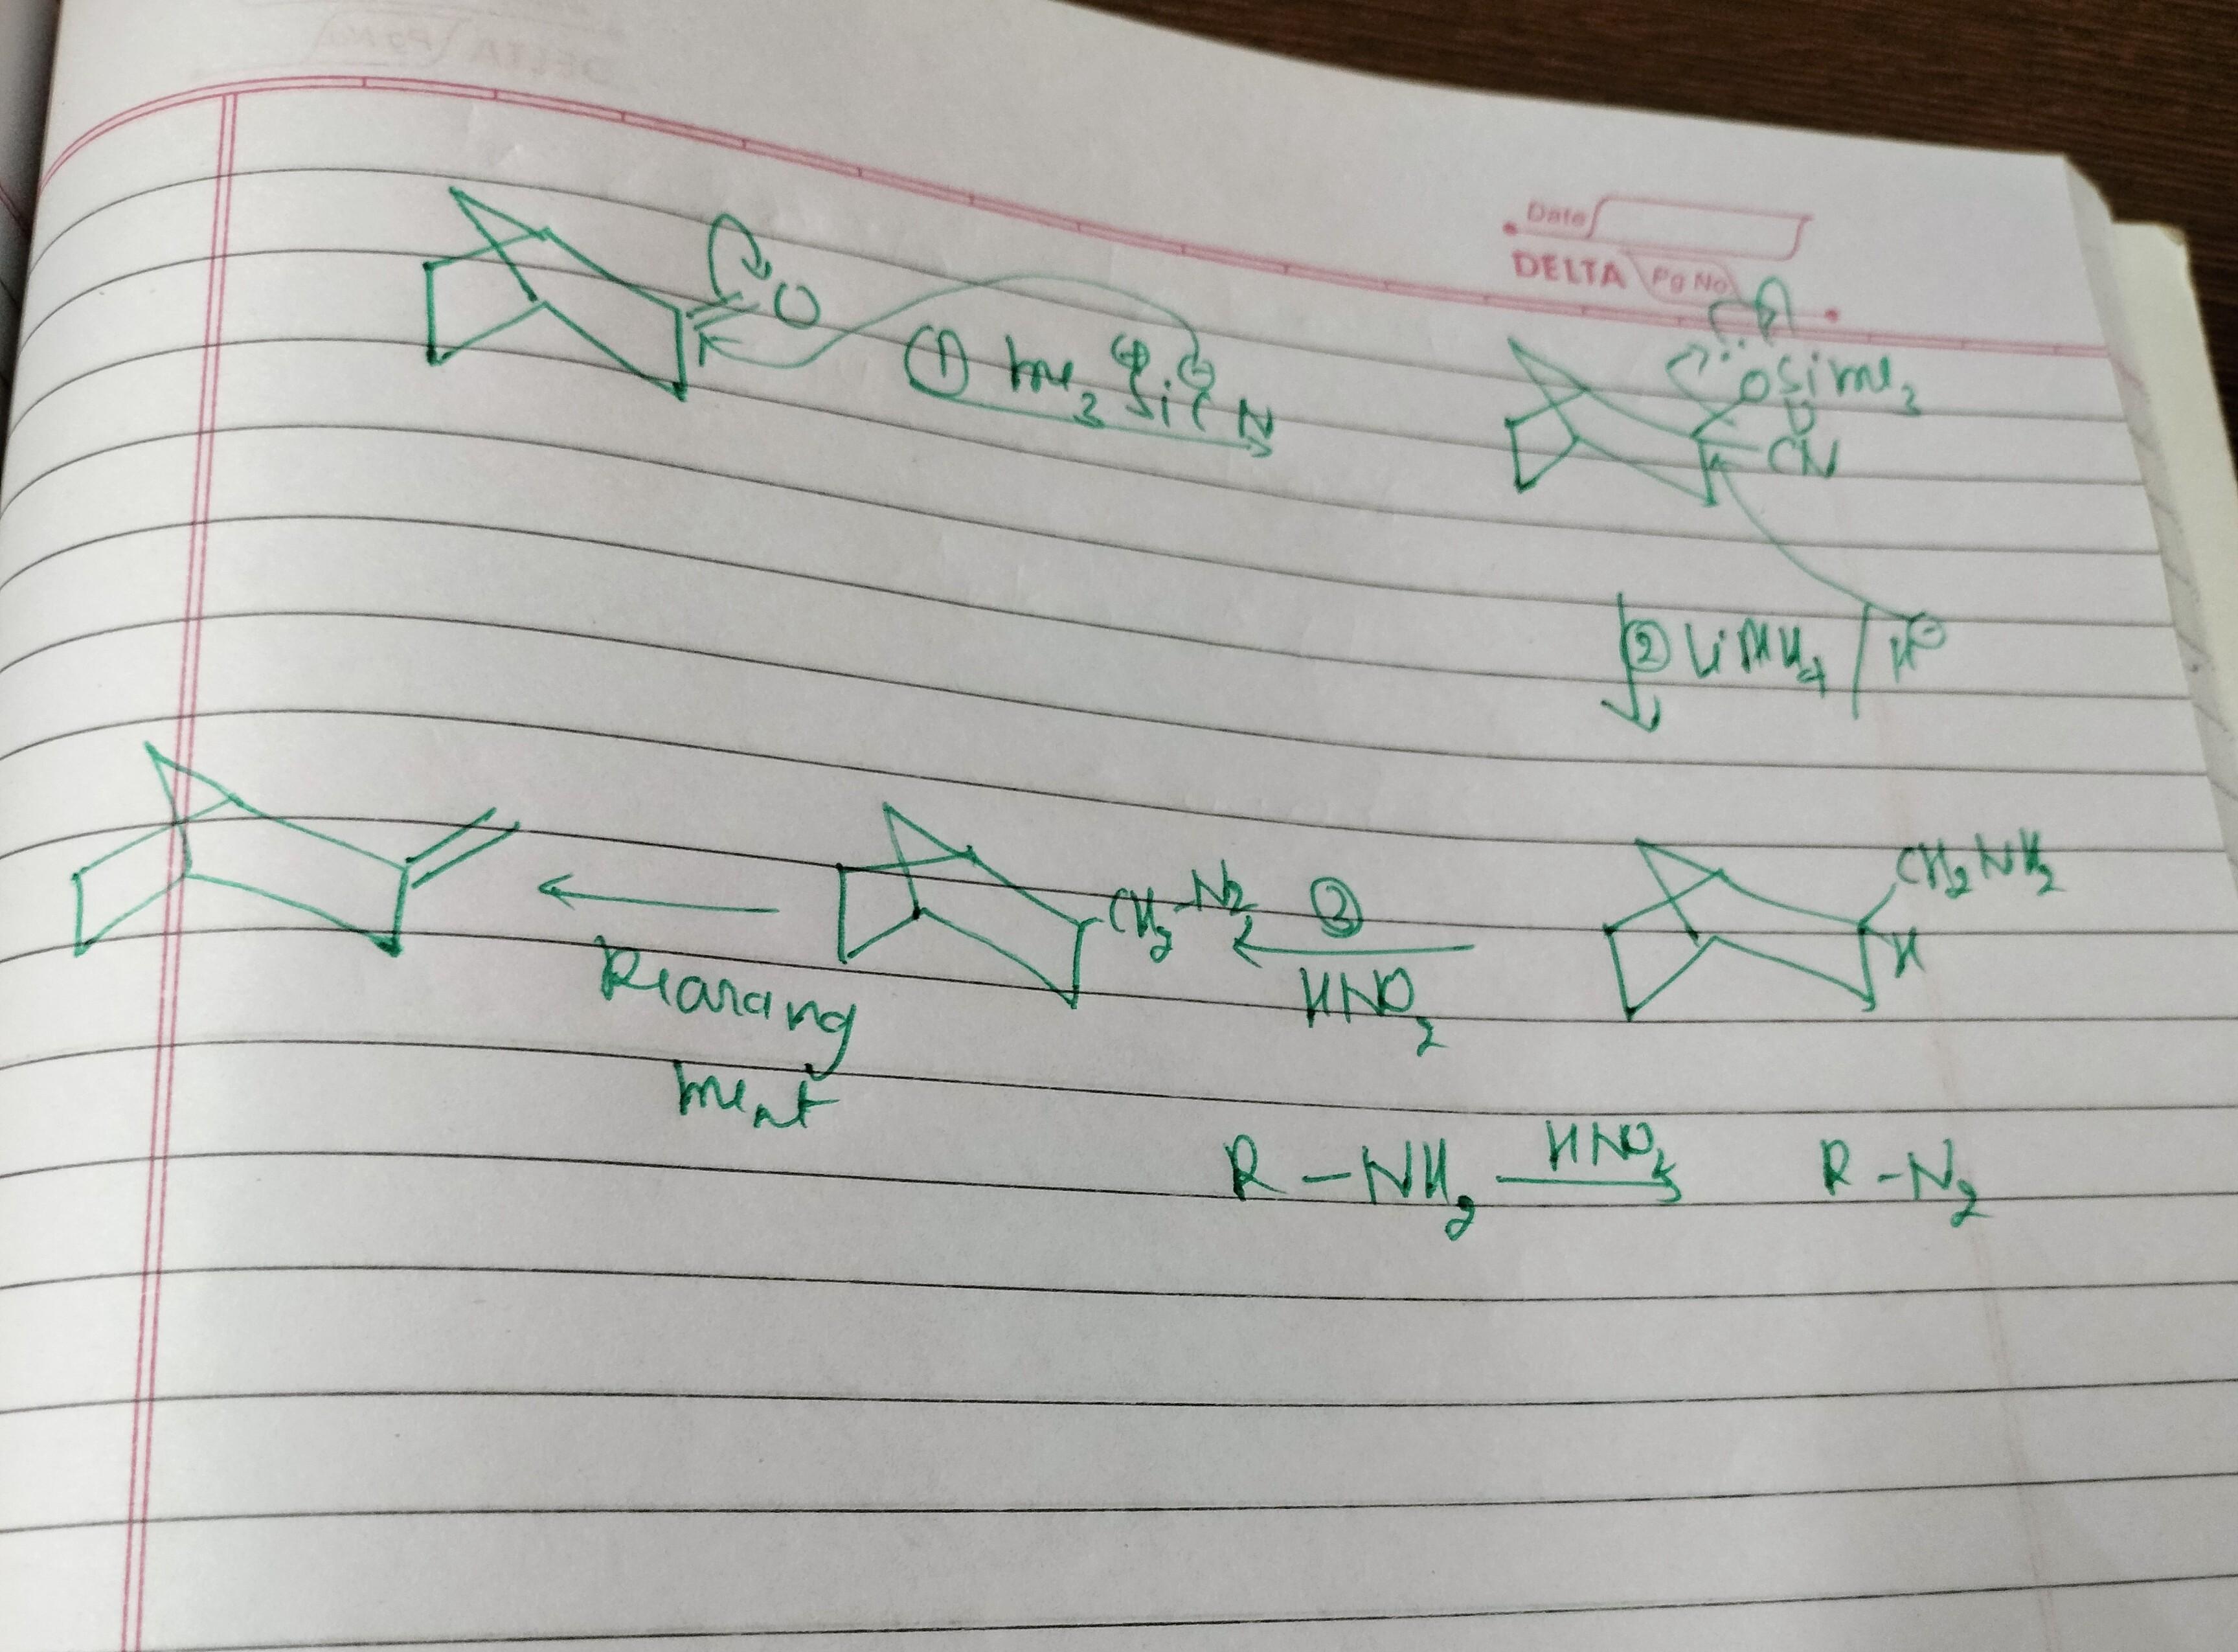 Date
DELTA Pg No
O
① me₃ Si⊕ C⊖ N
OSime₃
CN
② LiAlH₄ / H⊖
CH₂NH₂
H
③
HNO₂
CH₂-N₂
Rearang
ment
R-NH₂ HNO₂ R-N₂